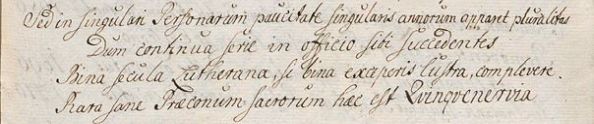 Sed in singulari Personarum paucitate singularis annorum apparet pluralitas
Dum continua serie in officio sibi succedentes
Bina secula Lutherana, si bina exceperis lustra, complevere.
Rara sane Præconum sacrorum hæc est Qvinqvenervia